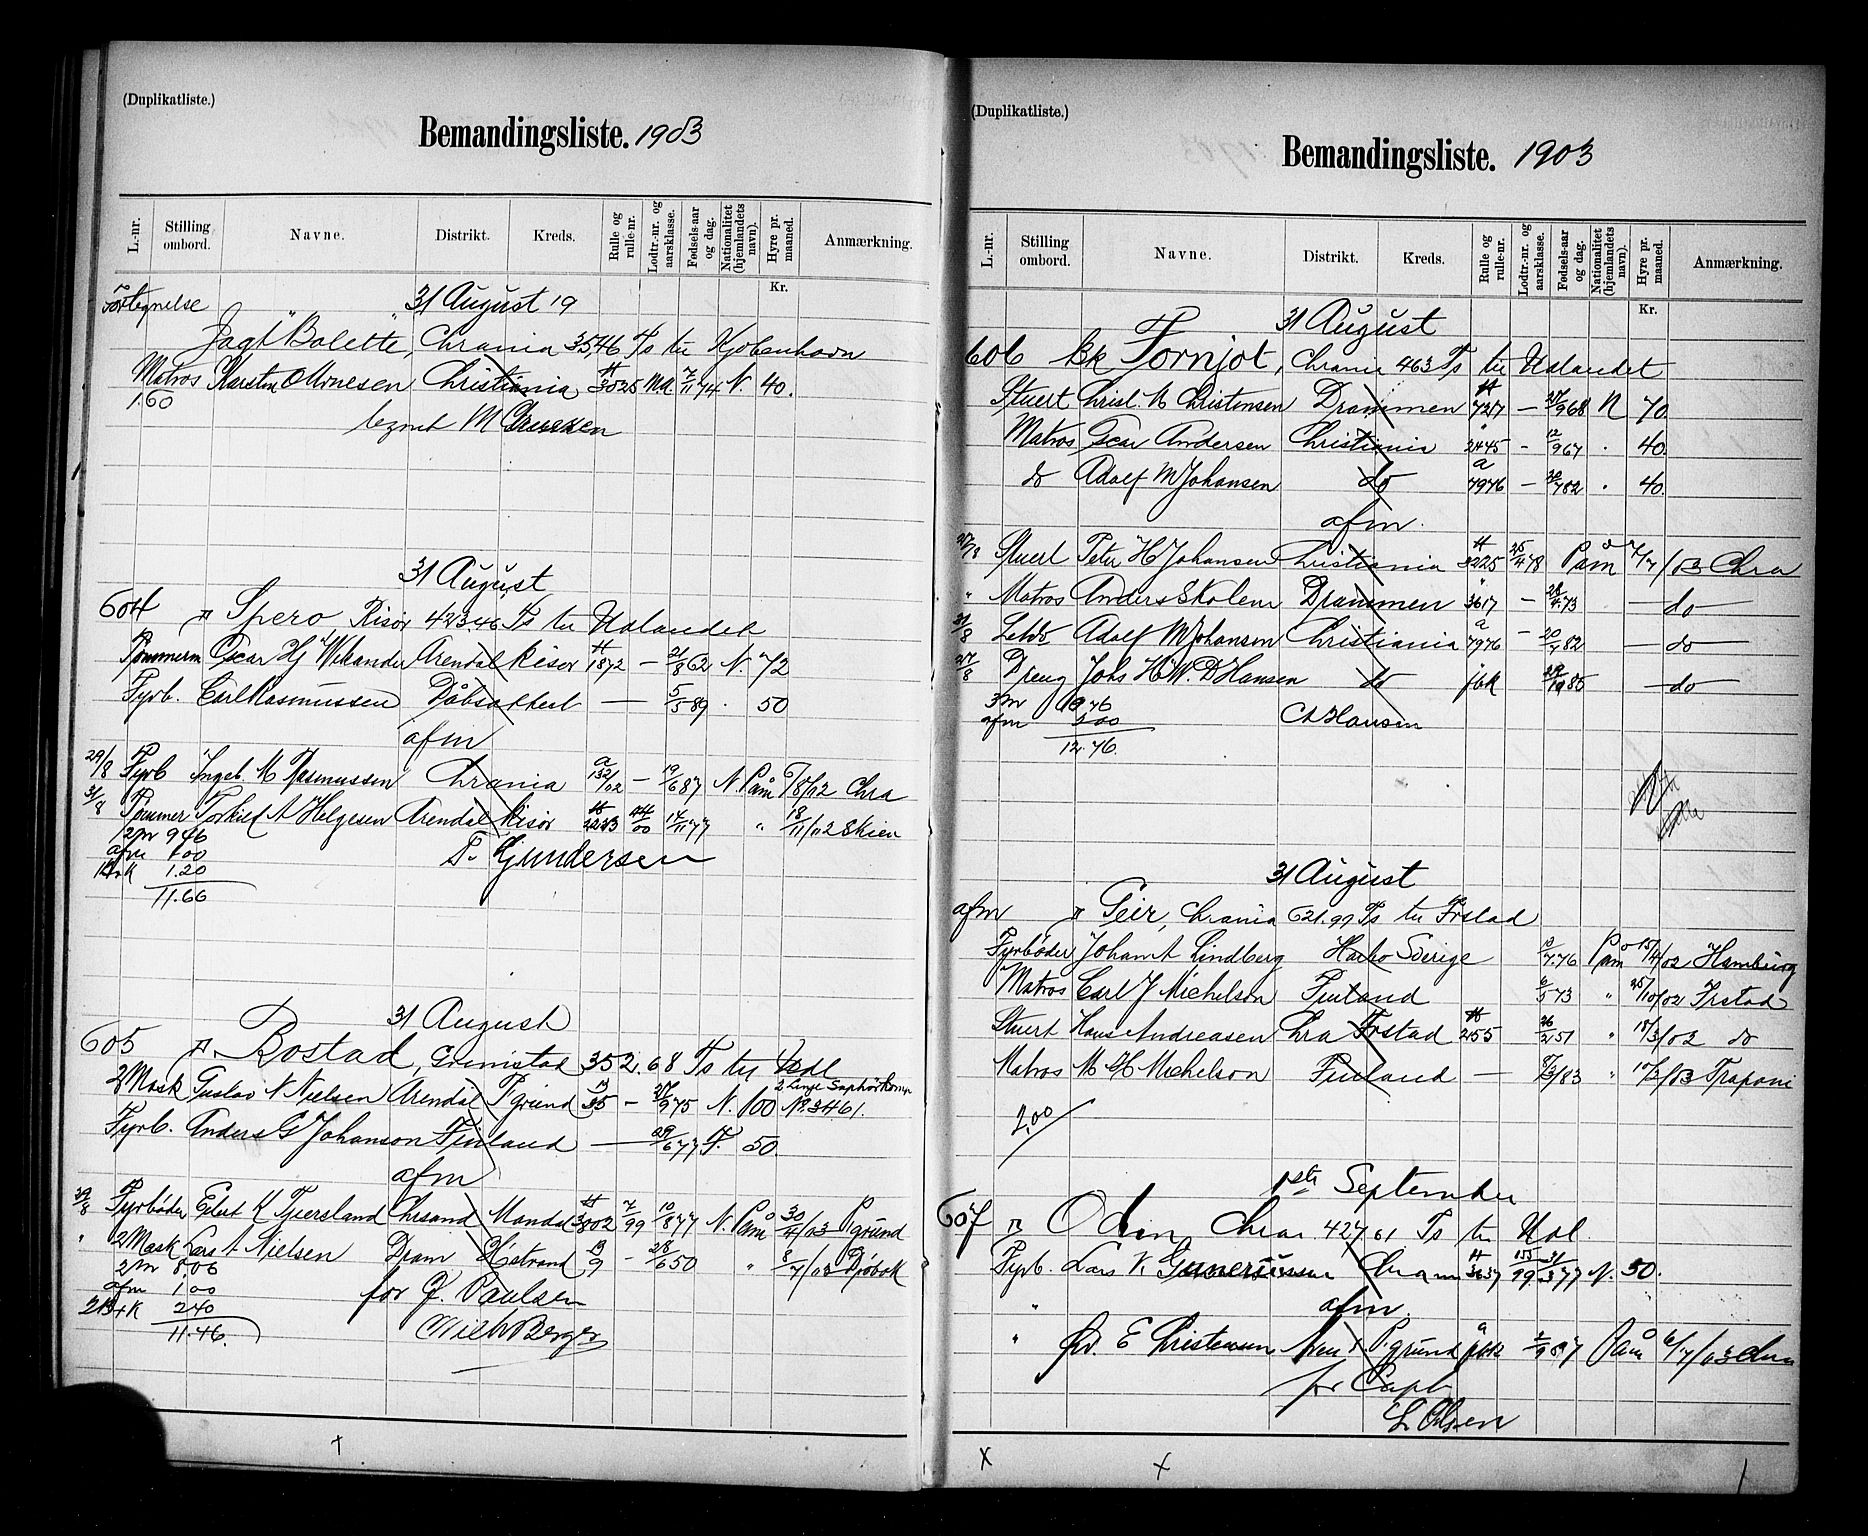 (Duplikatliste.)
Bemandingsliste. 1903
L.-nr. Stilling ombord. Navne. Distrikt. Kreds. Rulle og rulle-nr. Lodtr.-nr. og aarsklasse. Fødsels-aar og dag. Nationalitet (hjemlandets navn). Hyre pr. maaned. Anmærkning.
Kr.
Fortegnelse 31 August 19
Jagt "Bolette", Chrania 35.46 Ts til Kjobenhavn
Matros Karsten O Arnesen Christiania H 3025 7/11 74 N. 40.
1.60
31 August
604 Spero Risør 423.46 Ts til Udlandet
Tømmerm Oscar Hj Wikander Arendal Risør H 1872 — 21/8 62 N. 72
Fyrb. Carl Rasmussen — 5/5 89 . 50
afm
29/8 Fyrb Ingeb. M Rasmussen Chrania a 132/02 — 19/6 87 N. Påm 6/8/02 Chra
31/8 Tømmer Torkild A Helgesen Arendal Risør H 2223 14/11 77 " 18/11/02 Skien
2m 9.46
afm 1.00
1.20
11.66
T. Gundersen
31 August
605 Rostad, Grimstad 352.68 Ts til Udl
2 Mask Gustav N Nielsen Arendal Pgrund 13/35 — 27/9 75 N. 100 No 3461.
Fyrb. Anders G Johanson Finland — 29/6 77 F. 50.
afm
29/8 Fyrbøder Eilert K Tjersland Chrsand Mandal H 3002 7/99 10/8 77 N. Påm 30/4/03 Pgrund
" 2 Mask Lars A Nielsen Dram Hstrand 13/9 - 28/6 50 " 8/7/03 Drøbak
2m 8.06
afm 1.00
2.40
11.46.
for J. Paulsen
Wilh Berger
(Duplikatliste.)
Bemandingsliste. 1903
L.-nr. Stilling ombord. Navne. Distrikt. Kreds. Rulle og rulle-nr. Lodtr.-nr. og aarsklasse. Fødsels-aar og dag. Nationalitet (hjemlandets navn). Hyre pr. maaned. Anmærkning.
Kr.
31 August
606 Bk Fornjot, Chrania 463 Ts til Udlandet
Stuert Christ. M Christensen Drammen H 727 — 27/9 68 N 70
Matros Oscar Andersen Christiania " 2445 - 12/9 67 . 40.
do Adolf M Johansen do a 7976 — 20/7 82 . 40.
afm.
27/8 Stuert Peter H Johansen Christiania H 3225 25/4 78 Påm 7/7/03 Chra
" Matros Anders Skolem Drammen " 3617 — 28/4 73 — do —
31/8 Letm Adolf M Johansen Christiania a 7976 — 20/7 82 — do —
27/8 Dreng Johs H. W. D Hansen do jbk 85 — do —
3m 10.76
afm 2.00
12.76.
C A Hansen
31 August
afm Geir, Chrania 621.99 Ts til Frstad
Fyrbøder Johan A Lindberg Sverige 10/7 76 Påm 15/4/02 Hamburg
Matros Carl J Michelson Finland 6/5 73 " 25/10/02 Frstad
Stuert Hans Andreasen Chra Frstad H 2155 26/2 51 " 18/3/02 do
Matros M H Michelson Finland — 7/3/83 " 10/3/03 Trapani
2,00
1ste September
607 Odin Chra. 427.61 Ts til Udl.
Fyrb. Lars V. Gunerussen Chrania H 3637 155/99 31/3 77 N. 50.
" afm.
" E Christensen Pgrund jbk 87 Påm 6/7/03 Chra
for Capt
L Olsen